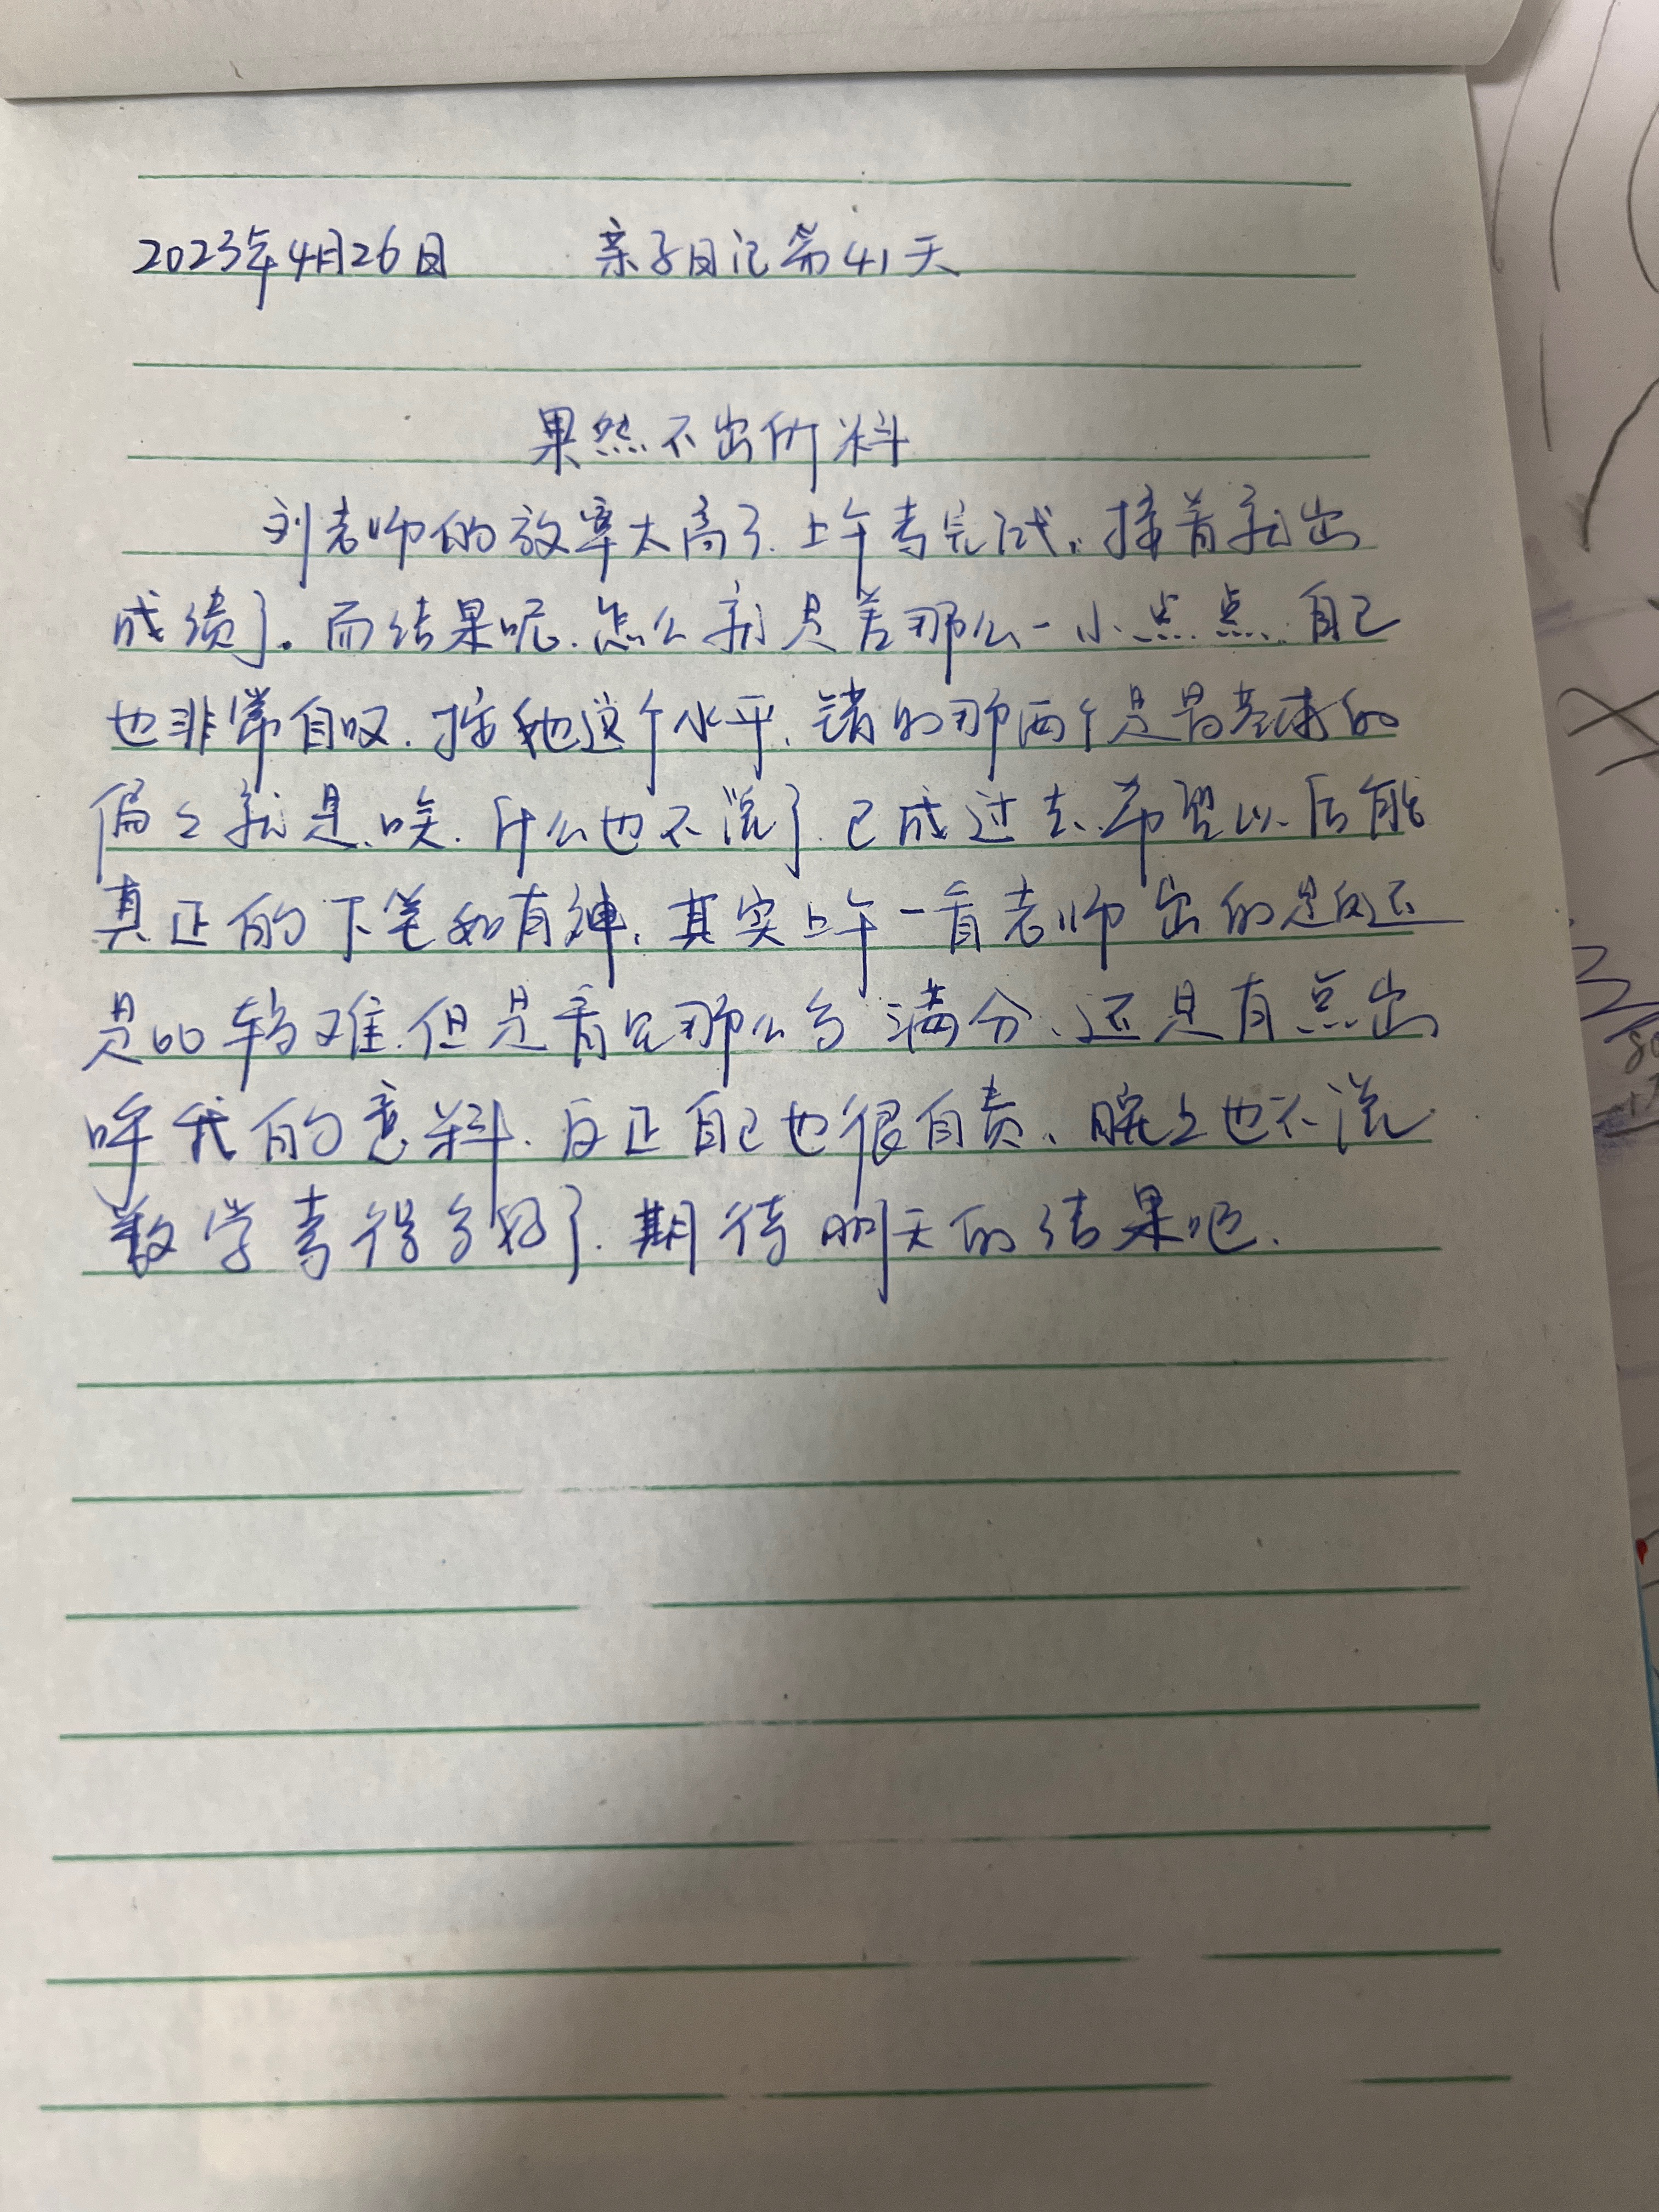 2023年4月26日 亲子日记第41天
果然不出所料
刘老师的效率太高了.上午考完试,接着就出
成绩了。而结果呢.怎么就是差那么一小点点.自己
也非常自叹.按她这个水平.错的那两个是最基本的
偏偏就是.唉.什么也不说了.已成过去.希望以后能
真正的下笔如有神.其实上午一看老师出的题还
是比较难.但是看见那么多满分.还是有点出
乎我的意料.反正自己也很自责.晚上也不说
数学考得多好了.期待明天的结果吧.